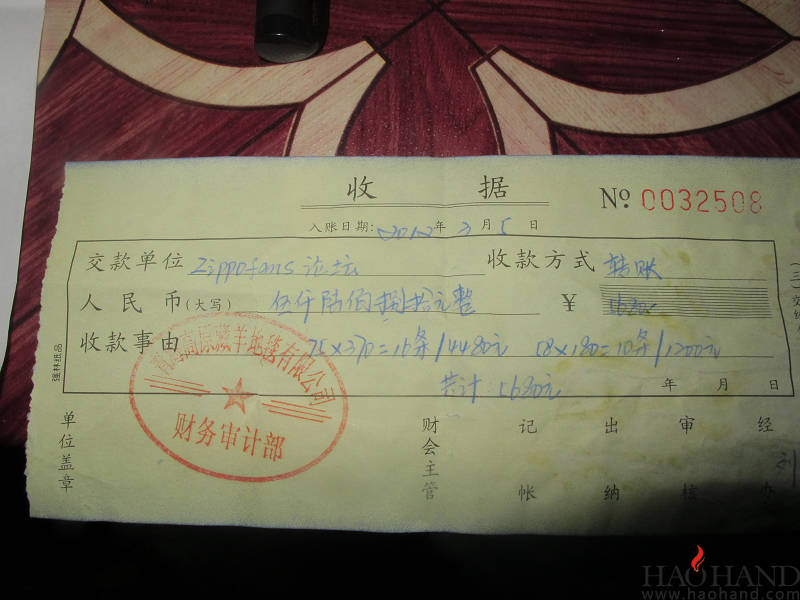 收 据
No 0032508
入账日期:2012年 3 月 5 日
交款单位 Zippofans 论坛 收款方式 转账
人民币(大写) 伍仟陆佰捌拾元整 ¥ 5680.-
收款事由 75×370=16条/4480元 58×180=10条/1200元
共计:5680元 年 月 日
高原藏羊地毯有限公司
财务审计部
单位盖章 财会主管 记帐 出纳 审核 经办 刘
强林纸品
HAOHAND
www.haohand.com